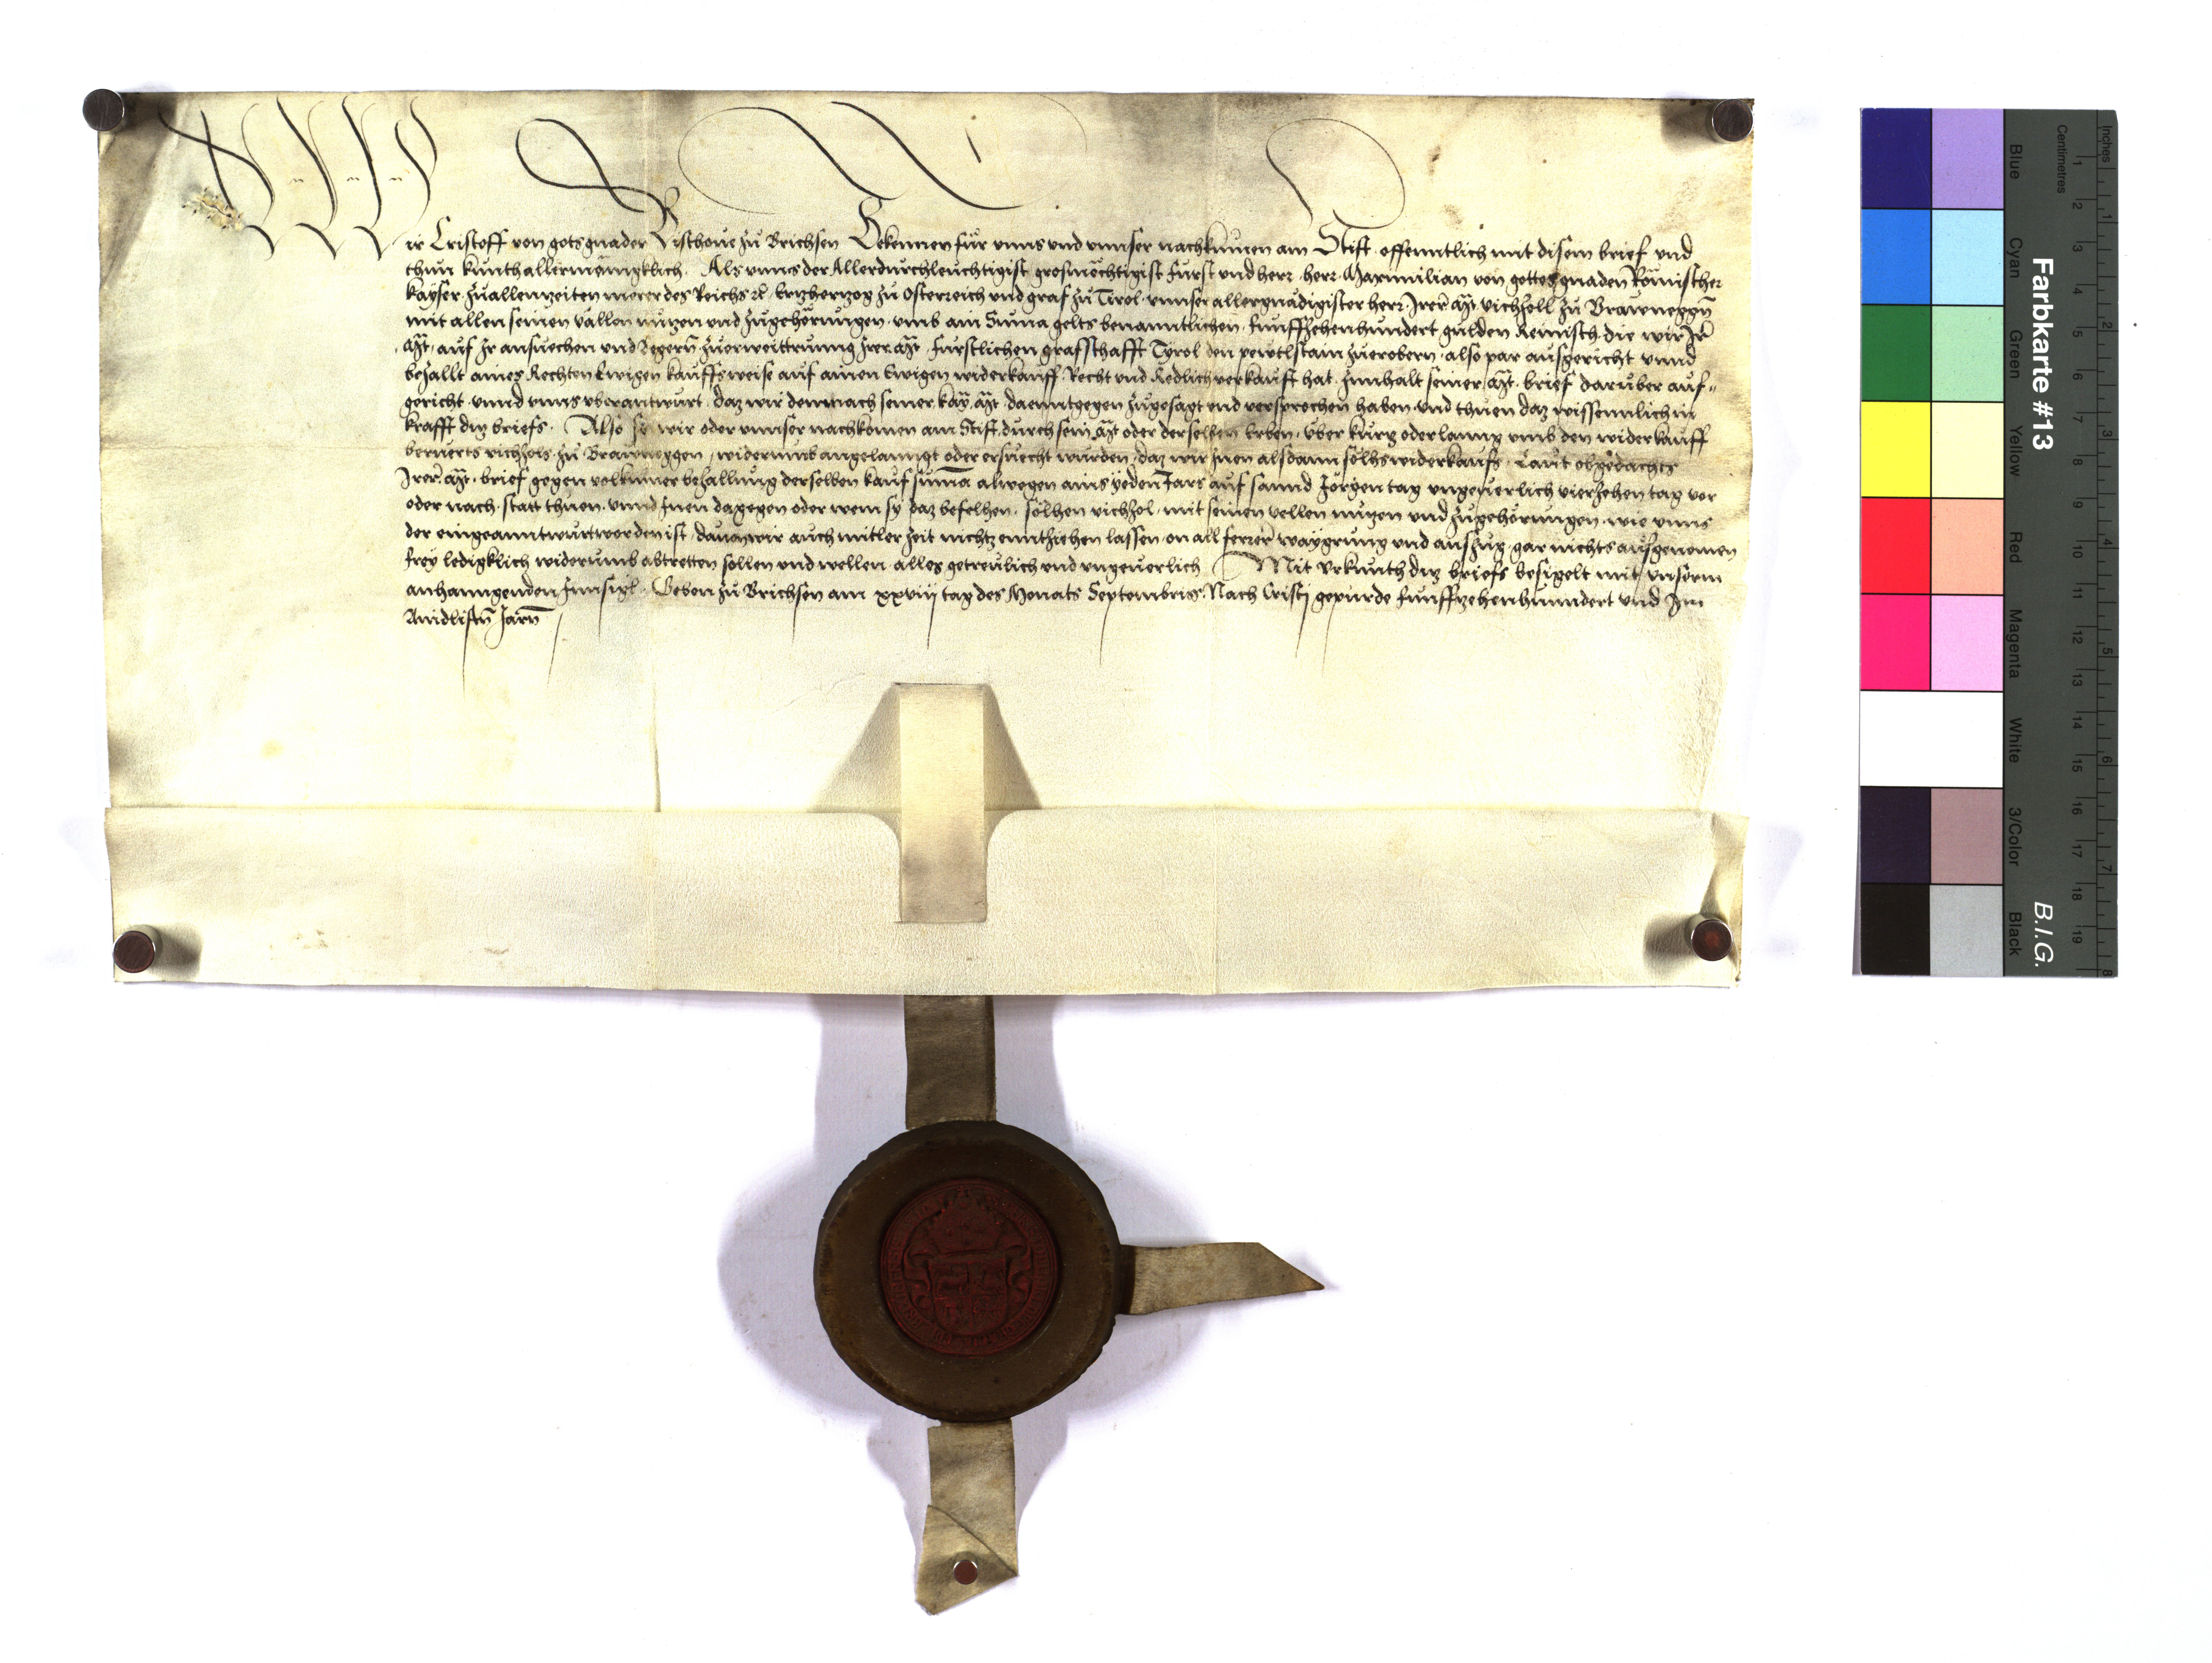 Wir Cristoff von gots gnaden Bischoue zů Brichsen Bekennen für vnns vnd vnnser nachkumen am Stift offenntlich mit disem brief vnd
thun kunth allermenigklich Als vnns der Allerdurchleuchtigist grosmechtigist fürst vnd herr herr Maximilian von gottes gnaden Römischer
kayser zuallenzeiten merer des Reichs rc Ertzherzog zů Osterreich vnd graf zů Tirol vnnser allergnädigister herr Irer Mt vichzoll zů Brawneggn
mit allen seinen vällen nutzen vnd zůgehörungen vmb ain Suma gelts benanntlichen funffzehenhundert gulden Reinisch die wir Ir
Mt auf Ir ansuechen vnd begern zuerweittrung Irer Mt fürstlichen grafschafft Tyrol den pewtlstain zuerobern also par ausgericht vnnd
bezallt aines Rechten Ewigen kauffs weise auf ainen Ewigen widerkauff Recht vnd Redlich verkauft hat Innhalt seiner Mt brief darüber auf„
gericht vnnd vnns vberantwurt daz wir demnach seiner kay Mt daenntgegen zůgesagt vnd versprochen haben vnd thuen daz wissenntlich in
krafft ditz briefs Also so wir oder vnnser nachkomen am Stift durch sein Mt oder derselben Erben über kurtz oder lanng vmb den widerkauff
berüerts vichzols zů Brawneggen widerumb angelanngt oder ersuecht wurden daz wir Inen alsdann solhs widerkaufs Laut obgedachts
Irer Mt brief gegen volkumer bezallung derselben kauf suma alwegen ains yeden Jars auf sannd Jörgen tag vngeuerlich vierzehen tag vor
oder nach statt thuen vnnd Inen dagegen oder wem sy daz befelhen solhen vichzol mit seinen vellen nutzen vnd zůgehörungen wie vnns
der eingeanntwurt worden ist dauon wir auch mitler zeit nichtz enntziehen lassen on all ferrer waygrung vnd auszug gar nichts ausgenomen
frey ledigklich widerumb abtretten sollen vnd wellen alles getreulich vnd vngeuerlich Mit vrkunth ditz briefs besigelt mit vnserm
anhanngenden Innsigl Geben zů Brichsen am xxviij tag des Monats Septembris Nach Cristj gepurde funffzehenhundert vnd Im
Aindlistn Jarn
Farbkarte #13
B.I.G.
Blue
Cyan
Green
Yellow
Red
Magenta
White
3/Color
Black
Centimetres
1 2 3 4 5 6 7 8 9 10 11 12 13 14 15 16 17 18 19
Inches
1 2 3 4 5 6 7 8